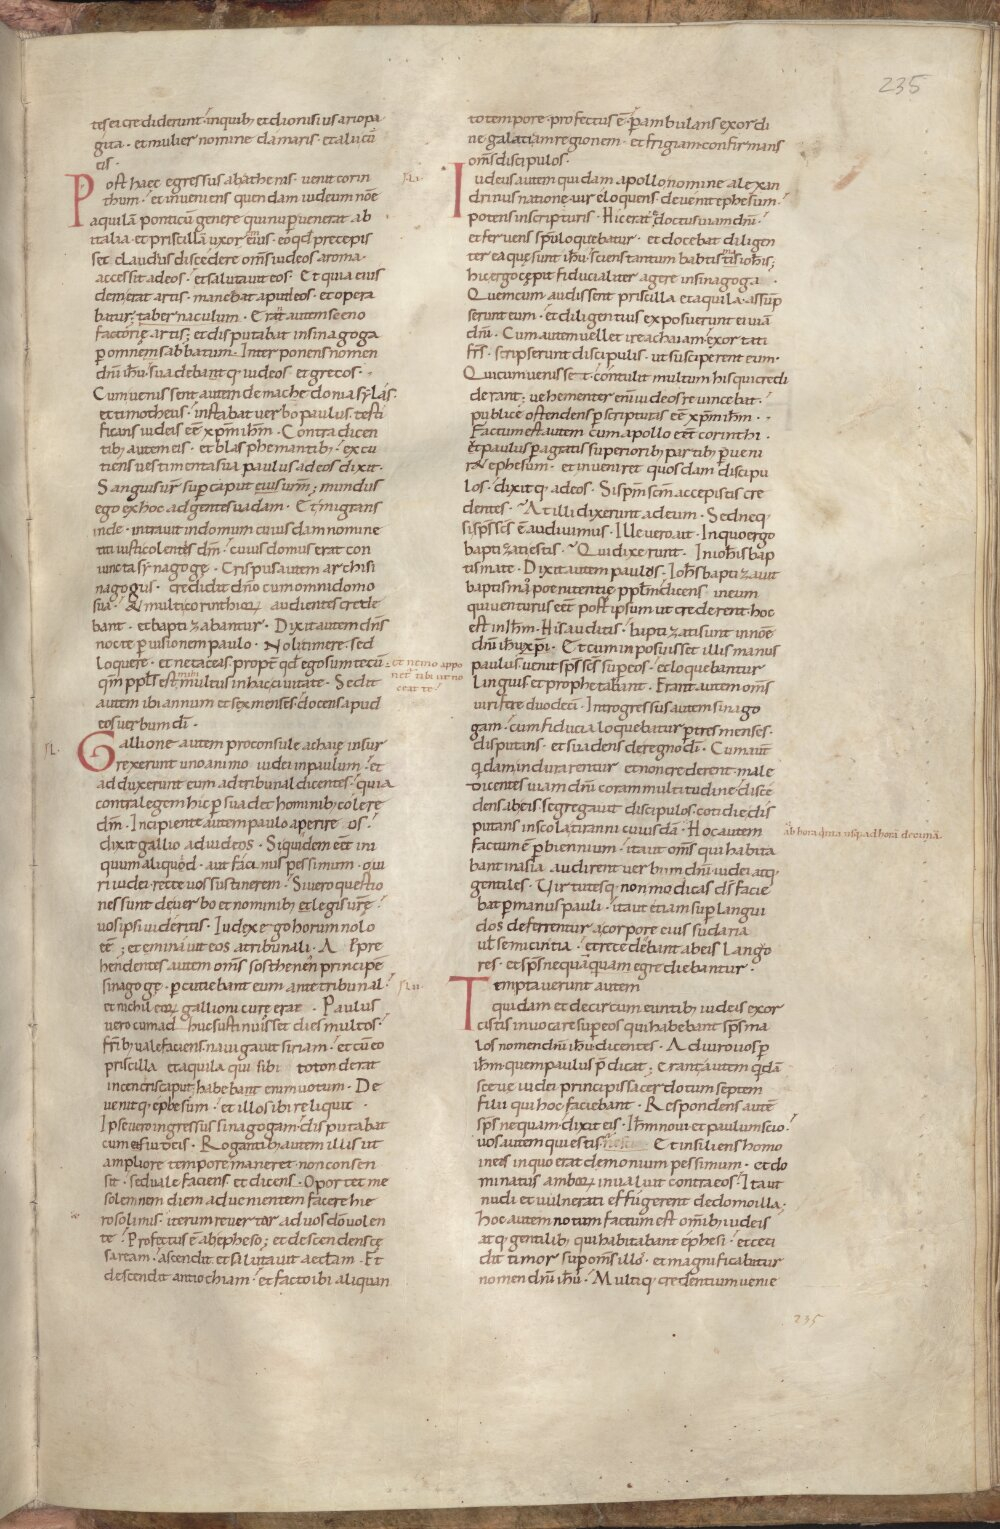 235
tes ei crediderunt· inquib; et dionisius ariopa
gita· et mulier nomine damaris· et alii cū
eis·
Post haec egressus ab athenis· venit corin
thum· et inveniens quendam iudeum noē
aquilā ponticū genere qui nup venerat ab
italia· et priscillā uxorē eius· eo qd precepis
set claudius discedere om̄s iudeos a roma·
accessit ad eos· et salutavit eos· Et quia eius
dem erat artis· manebat aput eos· et opera
batur; tabernaculum· Erāt autem sceno
factorię artis; et disputabat in sinagoga
p omnem sabbatum· Interponens nomen
dn̄i ih̄u· suadebantq· iudeos· et grecos·
Cum venissent autem de machedonia sylas·
et timotheus· instabat verbo paulus· testi
ficans iudeis eē xp̄m ih̄m· Contradicen
tib; autem eis· et blasphemantib; excu
tiens vestimenta sua paulus ad eos dixit·
Sanguis ur̄ sup caput eius urm̄; mundus
ego ex hoc ad gentes vadam· Et migrans
inde· intravit in domum cuiusdam nomine
titi iusti colentis dm̄· cuius domus erat con
iuncta synagogę· Crispus autem archisi
nagogus· credidit dn̄o cum omni domo
sua· & multi corinthioꝝ audientes crede
bant· et baptizabantur· Dixit autem dn̄s
nocte p visionem paulo· Noli timere· sed
loquere· et ne taceas· propt̄ qd ego sum tecū·
et nemo appo
net tibi ut no
ceat te
qm̄ ppl̄s est mihi multus in hac civitate· Sedit
autem ibi annum et sex menses· docens apud
eos verbum dī·
XL·
Gallione autem proconsule achaię insur
rexerunt uno animo iudei in paulum· et
adduxerunt eum ad tribunal dicentes· quia
contra legem hic psuadet hominib; colere
dm̄· Incipiente autem paulo aperire os·
dixit gallio ad iudeos· Si quidem eēt ini
quum aliquod· aut facinus pessimum· o viri
iudei· recte vos sustinerem· Si vero questio
nes sunt de verbo et nominib; et legis urę̄·
vos ipsi videritis· Iudex ego horum nolo
eē; et eminavit eos a tribunali· Appre
hendentes autem om̄s sosthenen principē
sinagogę· pcutiebant eum ante tribunal·
et nichil eoꝝ gallioni curę erat· Paulus
vero cum adhuc sustinuisset dies multos·
frīb; valefaciens navigavit siriam· et cū eo
priscilla et aquila qui sibi totonderat
in cencris caput; habebant enim votum· De
venitq· ephesum· et illos ibi reliquit·
Ipse vero ingressus sinagogam· disputabat
cum iudeis· Rogantib; autem illis ut
ampliore tempore maneret· non consen
sit· sed vale faciens· et dicens· Oportet me
solemnem diem advenientem facere hie
rosolimis· iterum revertar ad vos dō volen
te· Profectus ē ab epheso; et descendens cę
saream· ascendit et salutavit aeclam· Et
descendit antiochiam· et facto ibi aliquan
to tempore· profectus ē· pambulans ex ordi
ne galatiam regionem· et frigiam confirmans
om̄s discipulos·
XLI·
Iudeus autem quidam apollo nomine alexan
drinus natione· vir eloquens· devenit ephesum·
potens in scripturis· Hic erat doctus viam dn̄i·
et fervens spū loquebatur· et docebat diligen
ter ea quę sunt ih̄u· sciens tantum babtismū ioh̄is;
hic ergo cępit fiducialiter agere in sinagoga·
Quem cum audissent priscilla et aquila· assūp
serunt eum· et diligentius exposuerunt ei viā
dn̄i· Cum autem vellet ire achaiam· exortati
frs̄· scripserunt discipulis· ut susciperent eum·
Qui cum venisset· contulit multum his qui credi
derant; vehementer enī iudeos revincebat·
publice ostendens p scripturas eē xp̄m ih̄m·
Factum est autem cum apollo eēt corinthi·
et paulus pagratis superiorib; partib; pveni
r& ephesum· et inveniret quosdam discipu
los· dixitq· ad eos· Si sp̄m sc̄m accepistis cre
dentes· At illi dixerunt ad eum· Sed neq·
si sp̄s sc̄s ē audivimus· Ille vero ait· In quo ergo
baptizati estis· Qui dixerunt· In ioh̄is bap
tismate· Dixit autem paulus· Ioh̄s baptizavit
baptismā poenitentię ppl̄m dicens· in eum
qui venturus eēt post ipsum ut crederent· hoc
est in ih̄m· His auditis· baptizati sunt in noē
dn̄i ih̄u xp̄i· Et cum inposuisset illis manus
paulus· venit sp̄s sc̄s sup eos· et loquebantur
linguis· et prophetabant· Erant autem om̄s
viri fere duodecī· Introgressus autem sinago
gam· cum fiducia loquebatur p tres menses·
disputans· et suadens de regno dī· Cum aut̄
qdam indurarentur et non crederent· male
dicentes viam dn̄i coram multitudine· disce
dens ab eis segregavit discipulos· cotidie dis
putans in scola tiranni cuiusdā· Hoc autem
ab hora quinta usq· ad horā decimā·
factum ē p biennium· ita ut om̄s qui habita
bant in asia audirent verbum dn̄i· iudei atq·
gentiles· Virtutesq· non modicas d̄s facie
bat p manus pauli· ita ut etiam sup langui
dos deferrentur a corpore eius sudaria
ul̄ semicintia· et recedebant ab eis lango
res· et sp̄s nequā quam egrediebantur·
XLII·
Temptaverunt autem
quidam et de circumeuntib; iudeis exor
cistis invocare sup eos qui habebant sp̄s ma
los nomen dn̄i ih̄u· dicentes· Adiuro vos p
ih̄m· quem paulus pdicat; erant autem qdā
scevę iudei principis sacerdotum septem
filii qui hoc faciebant· Respondens autē
sp̄s nequam· dixit eis· Ih̄m novi et paulum scio·
vos autem qui estis· Et insiliens homo
in eis in quo erat demonium pessimum· et do
minatus amboꝝ invaluit contra eos· Ita ut
nudi et vulnerati effugerent de domo illa·
hoc autem notum factum est omīb; iudeis
atq· gentilib; qui habitabant ephesi· et ceci
dit timor sup om̄s illos· et magnificabatur
nomen dn̄i ih̄u· Multiq· credentium venie
235